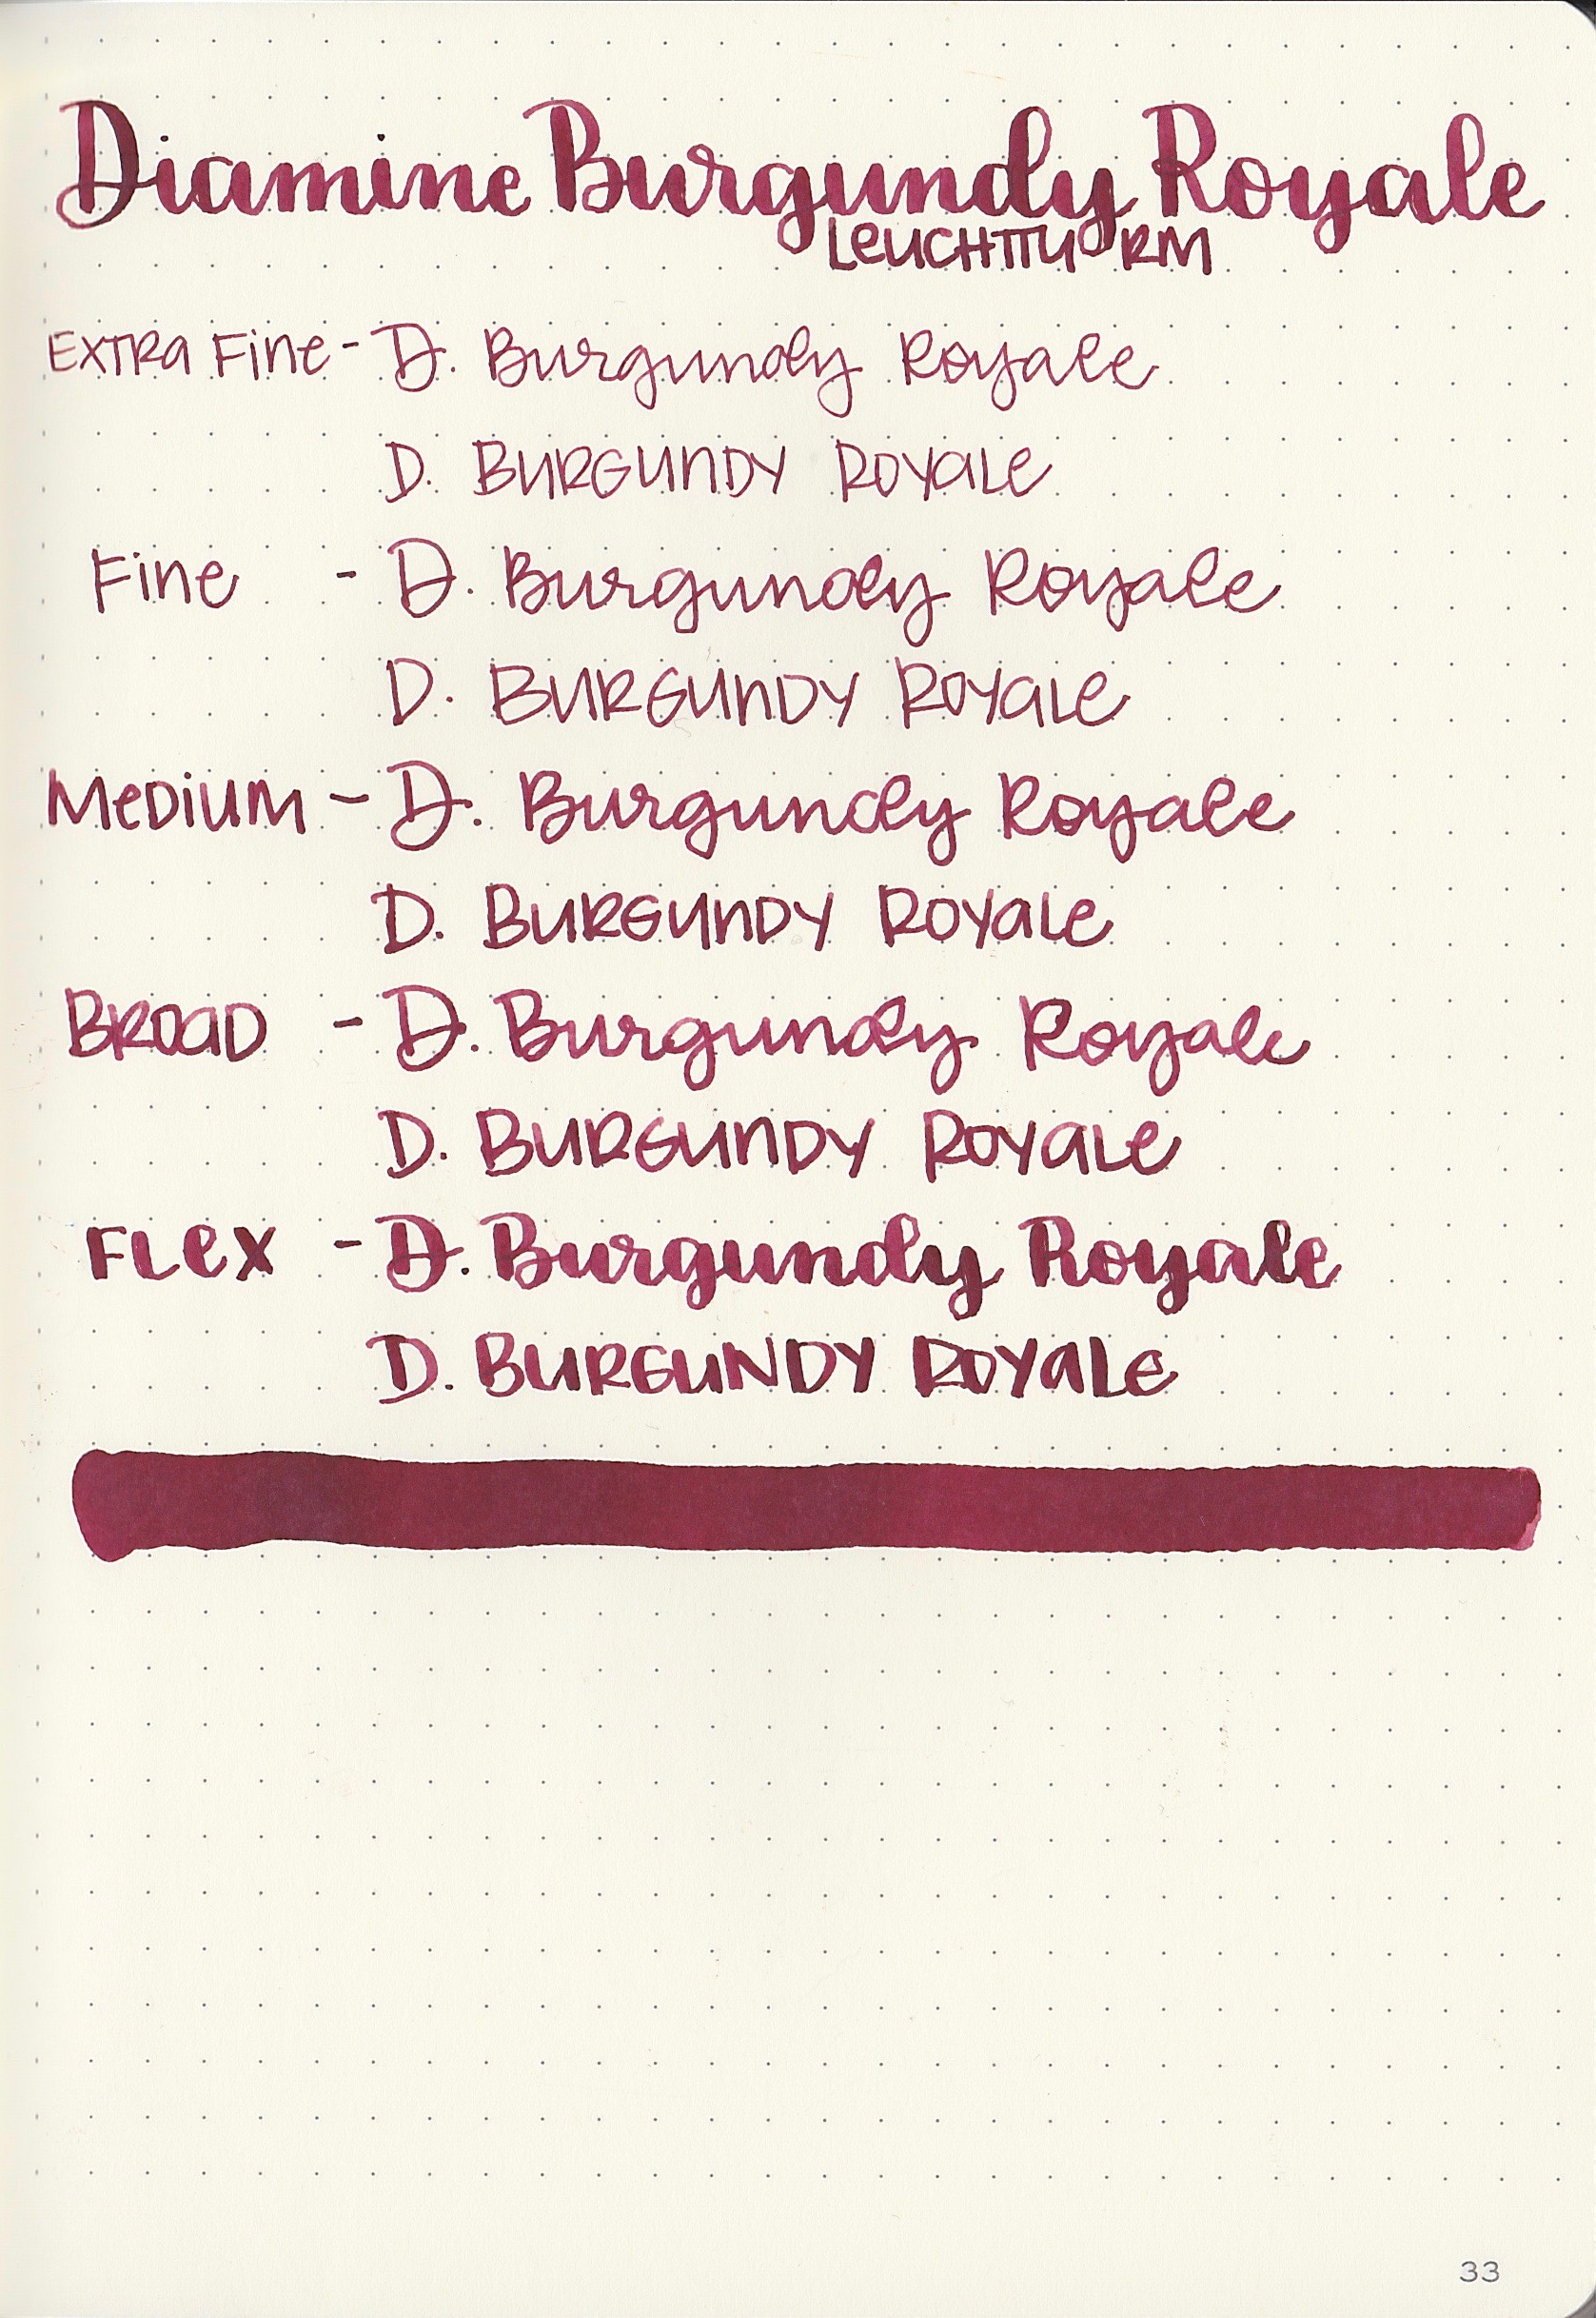 Diamine Burgundy Royale
LeUCHTTURM
EXTRa Fine - D. Burgundy Royale
D. BURGUNDY ROYALe
Fine - D. Burgundy Royale
D. BURGUNDY ROYALe
MeDiUM - D. Burgundy Royale
D. BURGUNDY ROYALe
BROAD - D. Burgundy Royale
D. BURGUNDY ROYALe
FLeX - D. Burgundy Royale
D. BURGUNDY ROYALe
33